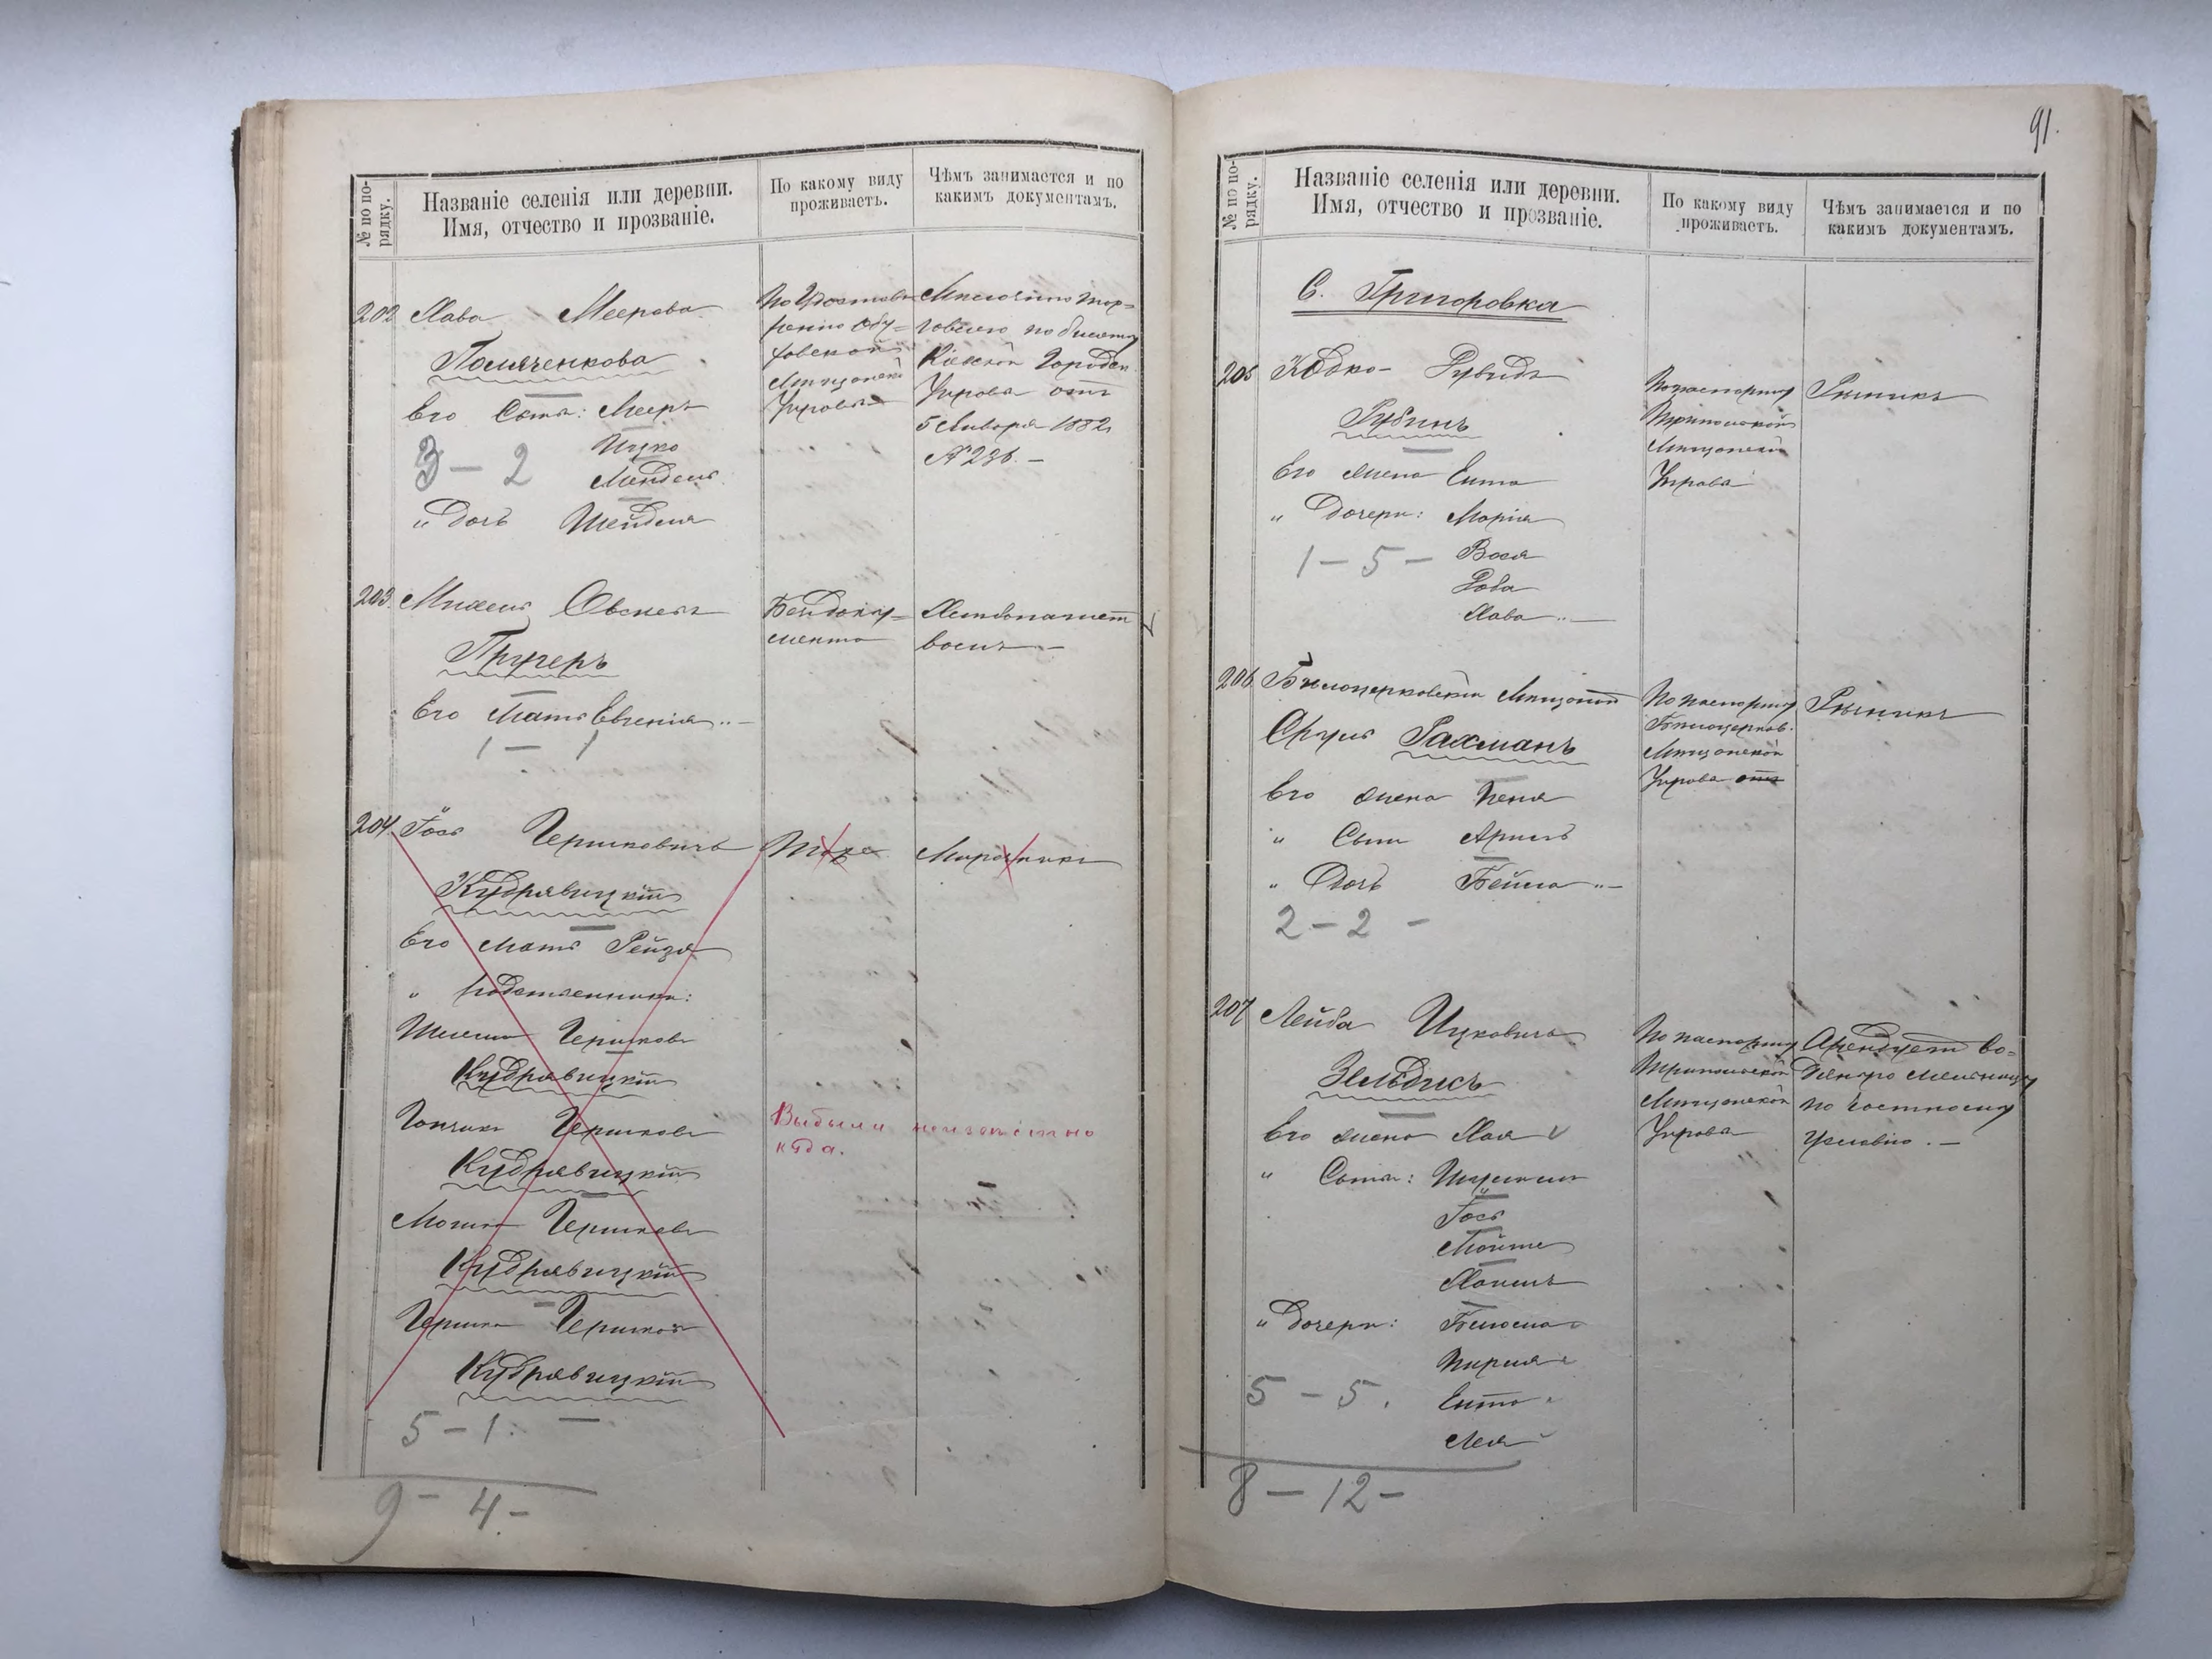 № по по-
рядку.
Названіе селенія или деревни.
Имя, отчество и прозваніе.
По какому виду
проживаетъ.
Чѣмъ занимается и по
какимъ документамъ.
202 Хава Меерова
Поляченкова
Его Сыны: Мееръ
Ицко
3 – 2 Мендель
" Дочь Шейдля
По Удостове
ренію Обу=
ховской
Мѣщанской
Управы
Мѣлочною тор=
говлею по билету
Кіевской Городск.
Управы отъ
5 Января 1882
№ 236. –
203. Михель Овсеевъ
Тругеръ
Его Мать Евгенія
1 – 1
Бездоку=
мента
Хлѣбопашест
вомъ
204. Іось Гершковичъ
Кудрявицкій
Его Мать Рейзя
" Родственники:
Шлема Гершковъ
Кудрявицкій
Гершковъ
Кудрявицкій
Мошко Гершковъ
Кудрявицкій
Гершко Гершковъ
Кудрявицкій
5 – 1. –
Тоже
Мирошникъ
Выбыли неизвѣстно
куда.
9 – 4 –
91.
№ по по-
рядку.
Названіе селенія или деревни.
Имя, отчество и прозваніе.
По какому виду
проживаетъ.
Чѣмъ занимается и по
какимъ документамъ.
С. Григоровка
205 Юдко- Рувидъ
Рубинъ
Его жена Ента
" Дочери: Марія
1 – 5 – Бася
Хава
По паспорту
Трипольской
Мѣщанской
Управы
Рѣзникъ
206. Бѣлоцерковскій Мѣщанинъ
Сруль Рахманъ
Его жена Пеня
" Сынъ Арысь
" Дочь Бейла
2 – 2 –
По паспорту
Бѣлоцерков.
Мѣщанской
Управы отъ
Рѣзникъ
207 Лейба Ицковичъ
Зельдисъ
Его жена Хая
" Сыны:
Іось
Мойше
Хаимъ
" Дочери: Блюма
Пирля
5 – 5. Ента
Лея
По паспорту
Трипольской
Мѣщанской
Управы
Арендуетъ во=
дяную мельницу
по частному
условію. –
8 – 12 –